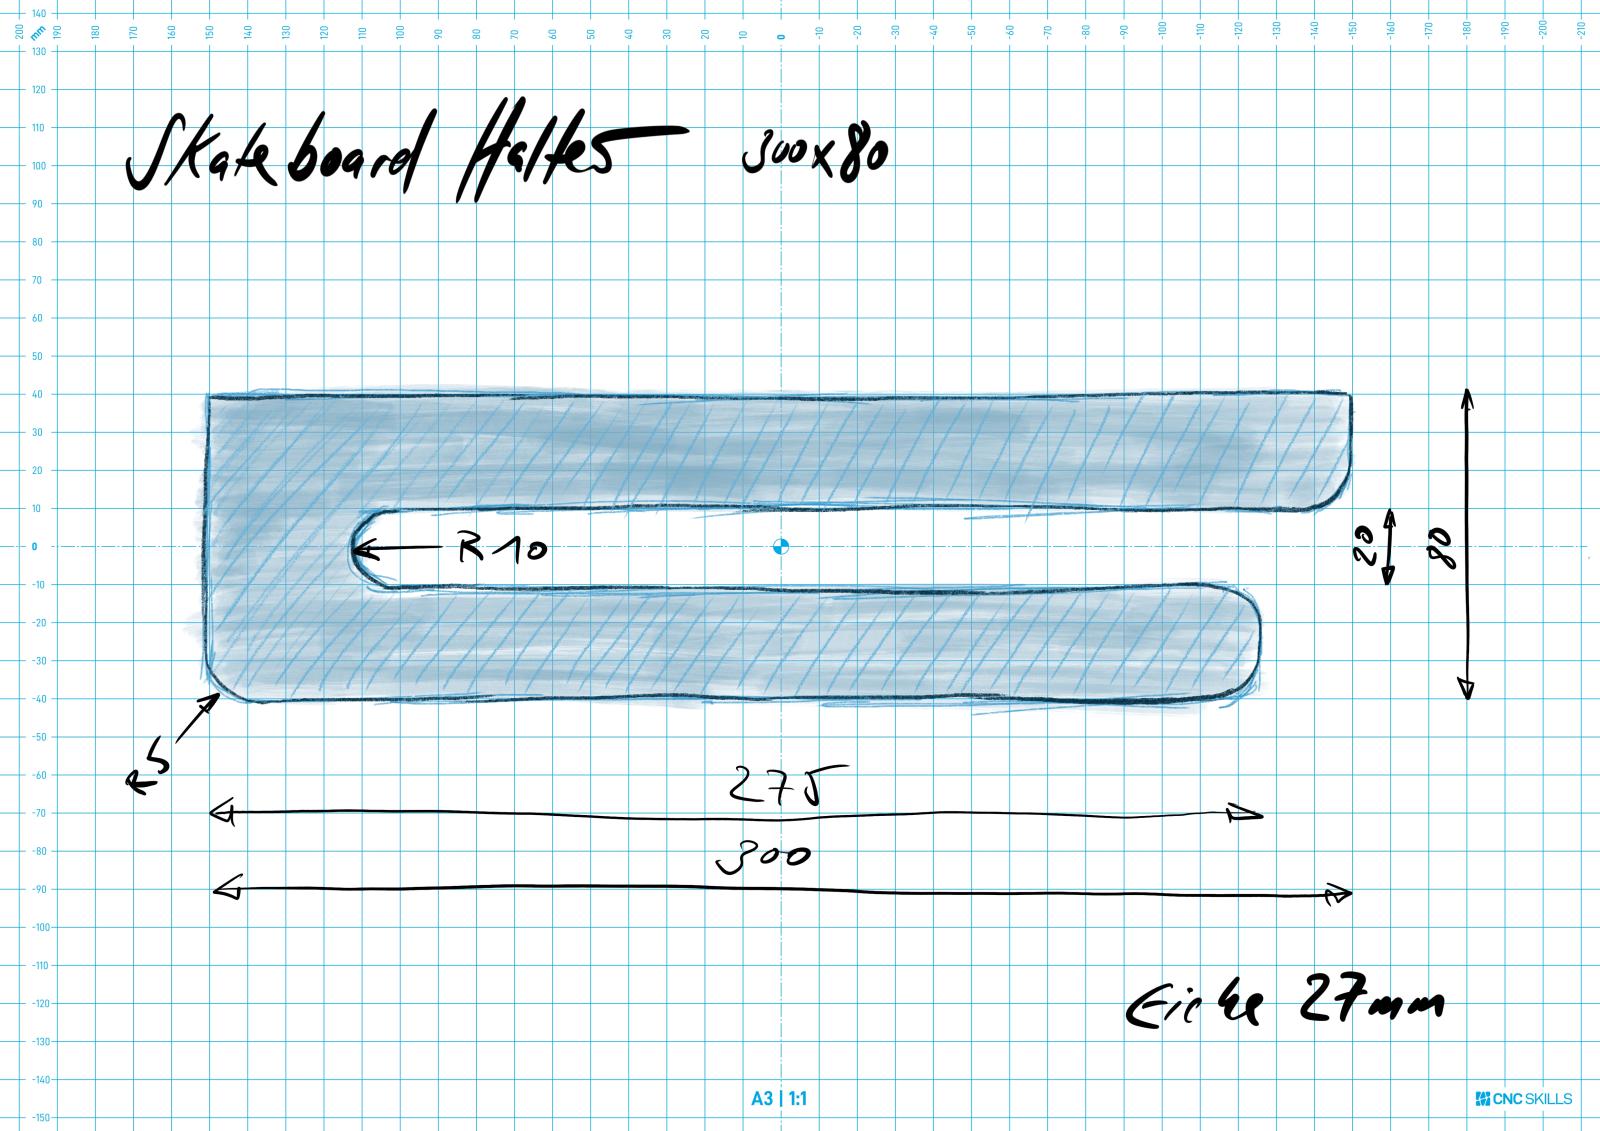 140
200 mm 190 180 170 160 150 140 130 120 110 100 90 80 70 60 50 40 30 20 10 0 -10 -20 -30 -40 -50 -60 -70 -80 -90 -100 -110 -120 -130 -140 -150 -160 -170 -180 -190 -200 -210
130
120
110
100
90
80
70
60
50
40
30
20
10
0
-10
-20
-30
-40
-50
-60
-70
-80
-90
-100
-110
-120
-130
-140
-150
Skateboard Halter 300x80
R10
20
80
R5
275
300
Eiche 27mm
A3 | 1:1
CNC SKILLS